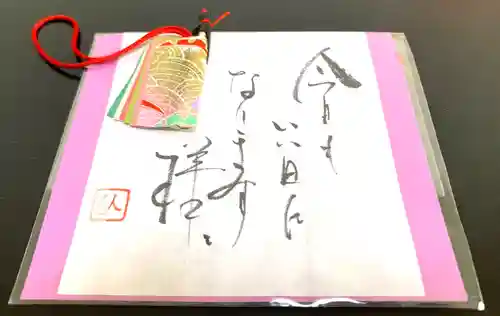 今日も
いい日に
なります
様に